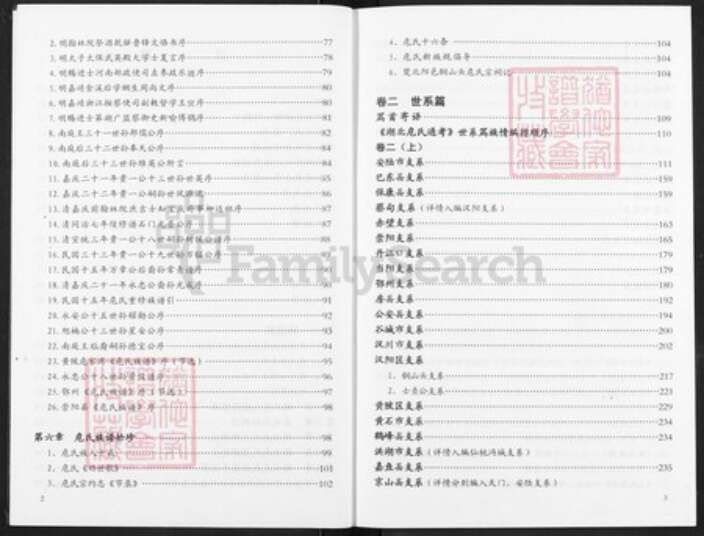 2.明翰林院祭酒 77
3.明太子太保武英殿大学士夏言序 78
4.明赐进士河南邮政使司左参政乐 79
5.明嘉靖金溪后学 80
6.明嘉靖浙江按察使司副教督学 80
7.明赐进士 82
8.南庭王三十一世孙郁儒公序 81
9.南庭后三十二世孙奉先公序 82
10.南庭后三十三世孙雅英公所言 84
11.嘉庆二十一年黄一公十三世孙世英序 85
12.嘉庆二十二年黄一公嗣孙世 86
13.清嘉庆前翰林院庶吉士知 87
14.清同治七年 修谱石门元圣公序 87
15.清宣统三年黄一公十八世嗣孙 公谱序 88
16.民国三十三年黄一公十九世孙万 公序
17.民国十五年万章公后裔孙 谱序
18.清嘉庆二十一年永忠公裔孙 序 90
19.民国十五年危氏重修族谱引 91
20.永安公十五世孙耀勤公序 92
21.旭楠公十三世孙星安公序 93
22.南庭王后裔嗣孙德宝公序 94
23.黄陂 危氏族谱》序(节选) 95
24.永忠公十八世孙 谱序 96
25.鄂州《危氏族谱》序(节选) 97
26.崇阳县《危氏族谱》序 98
第六章 危氏族谱拾珍 98
1.危氏族人十 99
2.危氏《 世歌》 101
3.危氏宗约志《节录》 102
2
4.危氏十六条 104
5.危氏新族规倡导 104
6.楚北阳邑铜山头危氏宗祠记 104
卷二 世系篇
篇首寄语 109
《湖北危氏通考》世系篇族情编排顺序 110
卷二(上)
安陆市支系 111
巴东县支系 159
保康县支系 159
蔡甸支系(详情入编汉阳支系)
赤壁支系 163
崇阳支系 165
丹江口支系 179
当阳支系 179
鄂州支系 182
房县支系 192
公安县支系 194
谷城市支系 200
汉川市支系 202
汉阳区支系
1.铜山头支系 217
2.士贵公支系 223
黄陂区支系 229
黄石市支系 234
鹤峰县支系 234
洪湖市支系(详情入编仙桃沔城支系)
嘉鱼县支系 235
京山县支系(详情分别编入天门、安陆支系)
3
FamilySearch